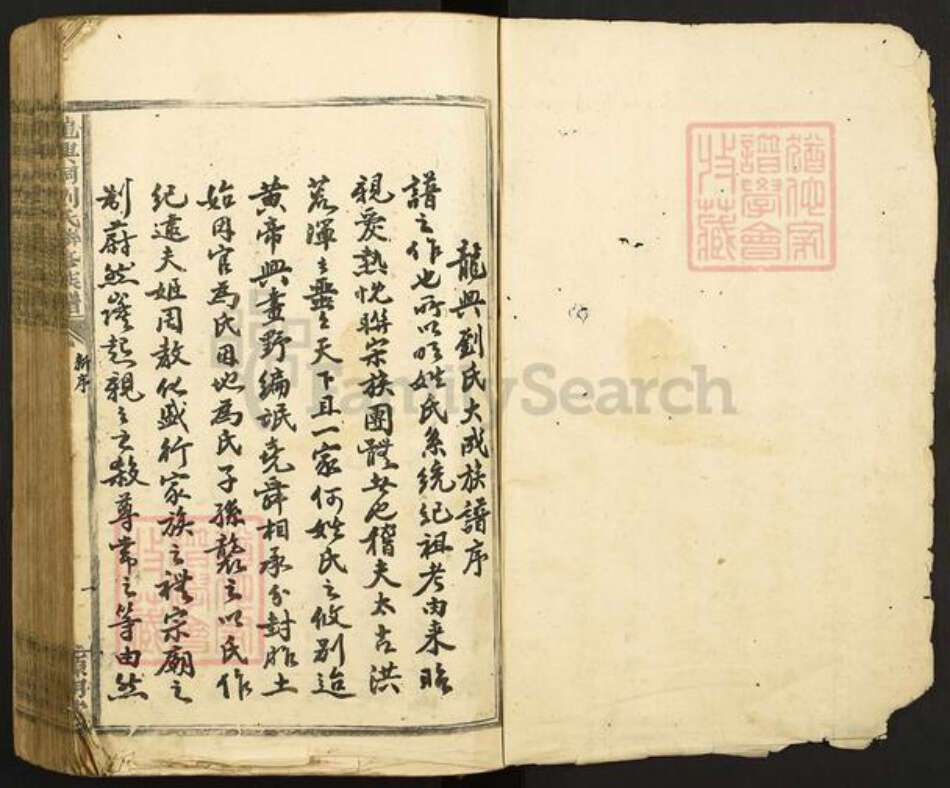 龍興劉氏大成族譜序
譜之作也所以明姓氏系統紀祖考由来
親愛熱忱聯宗族團體其也稽夫太古洪
荒渾之噩之天下且一家何姓氏之攸别迨
黄帝興畫野编氓堯舜相承分封胙土
始因官為氏因地為氏子孫襲之以氏作
紀逮夫姬周教化盛行家族之禮宗廟之
制蔚然議起親之之殺尊常之等由然
新序
劉氏
族譜
猶他家
譜學會
收藏
FamilySearch